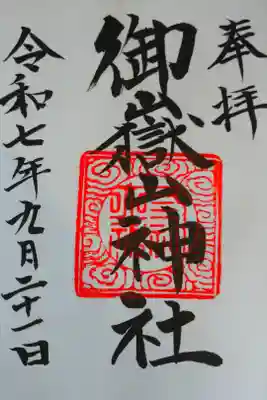 奉拝
御嶽山神社
令和七年九月二十一日